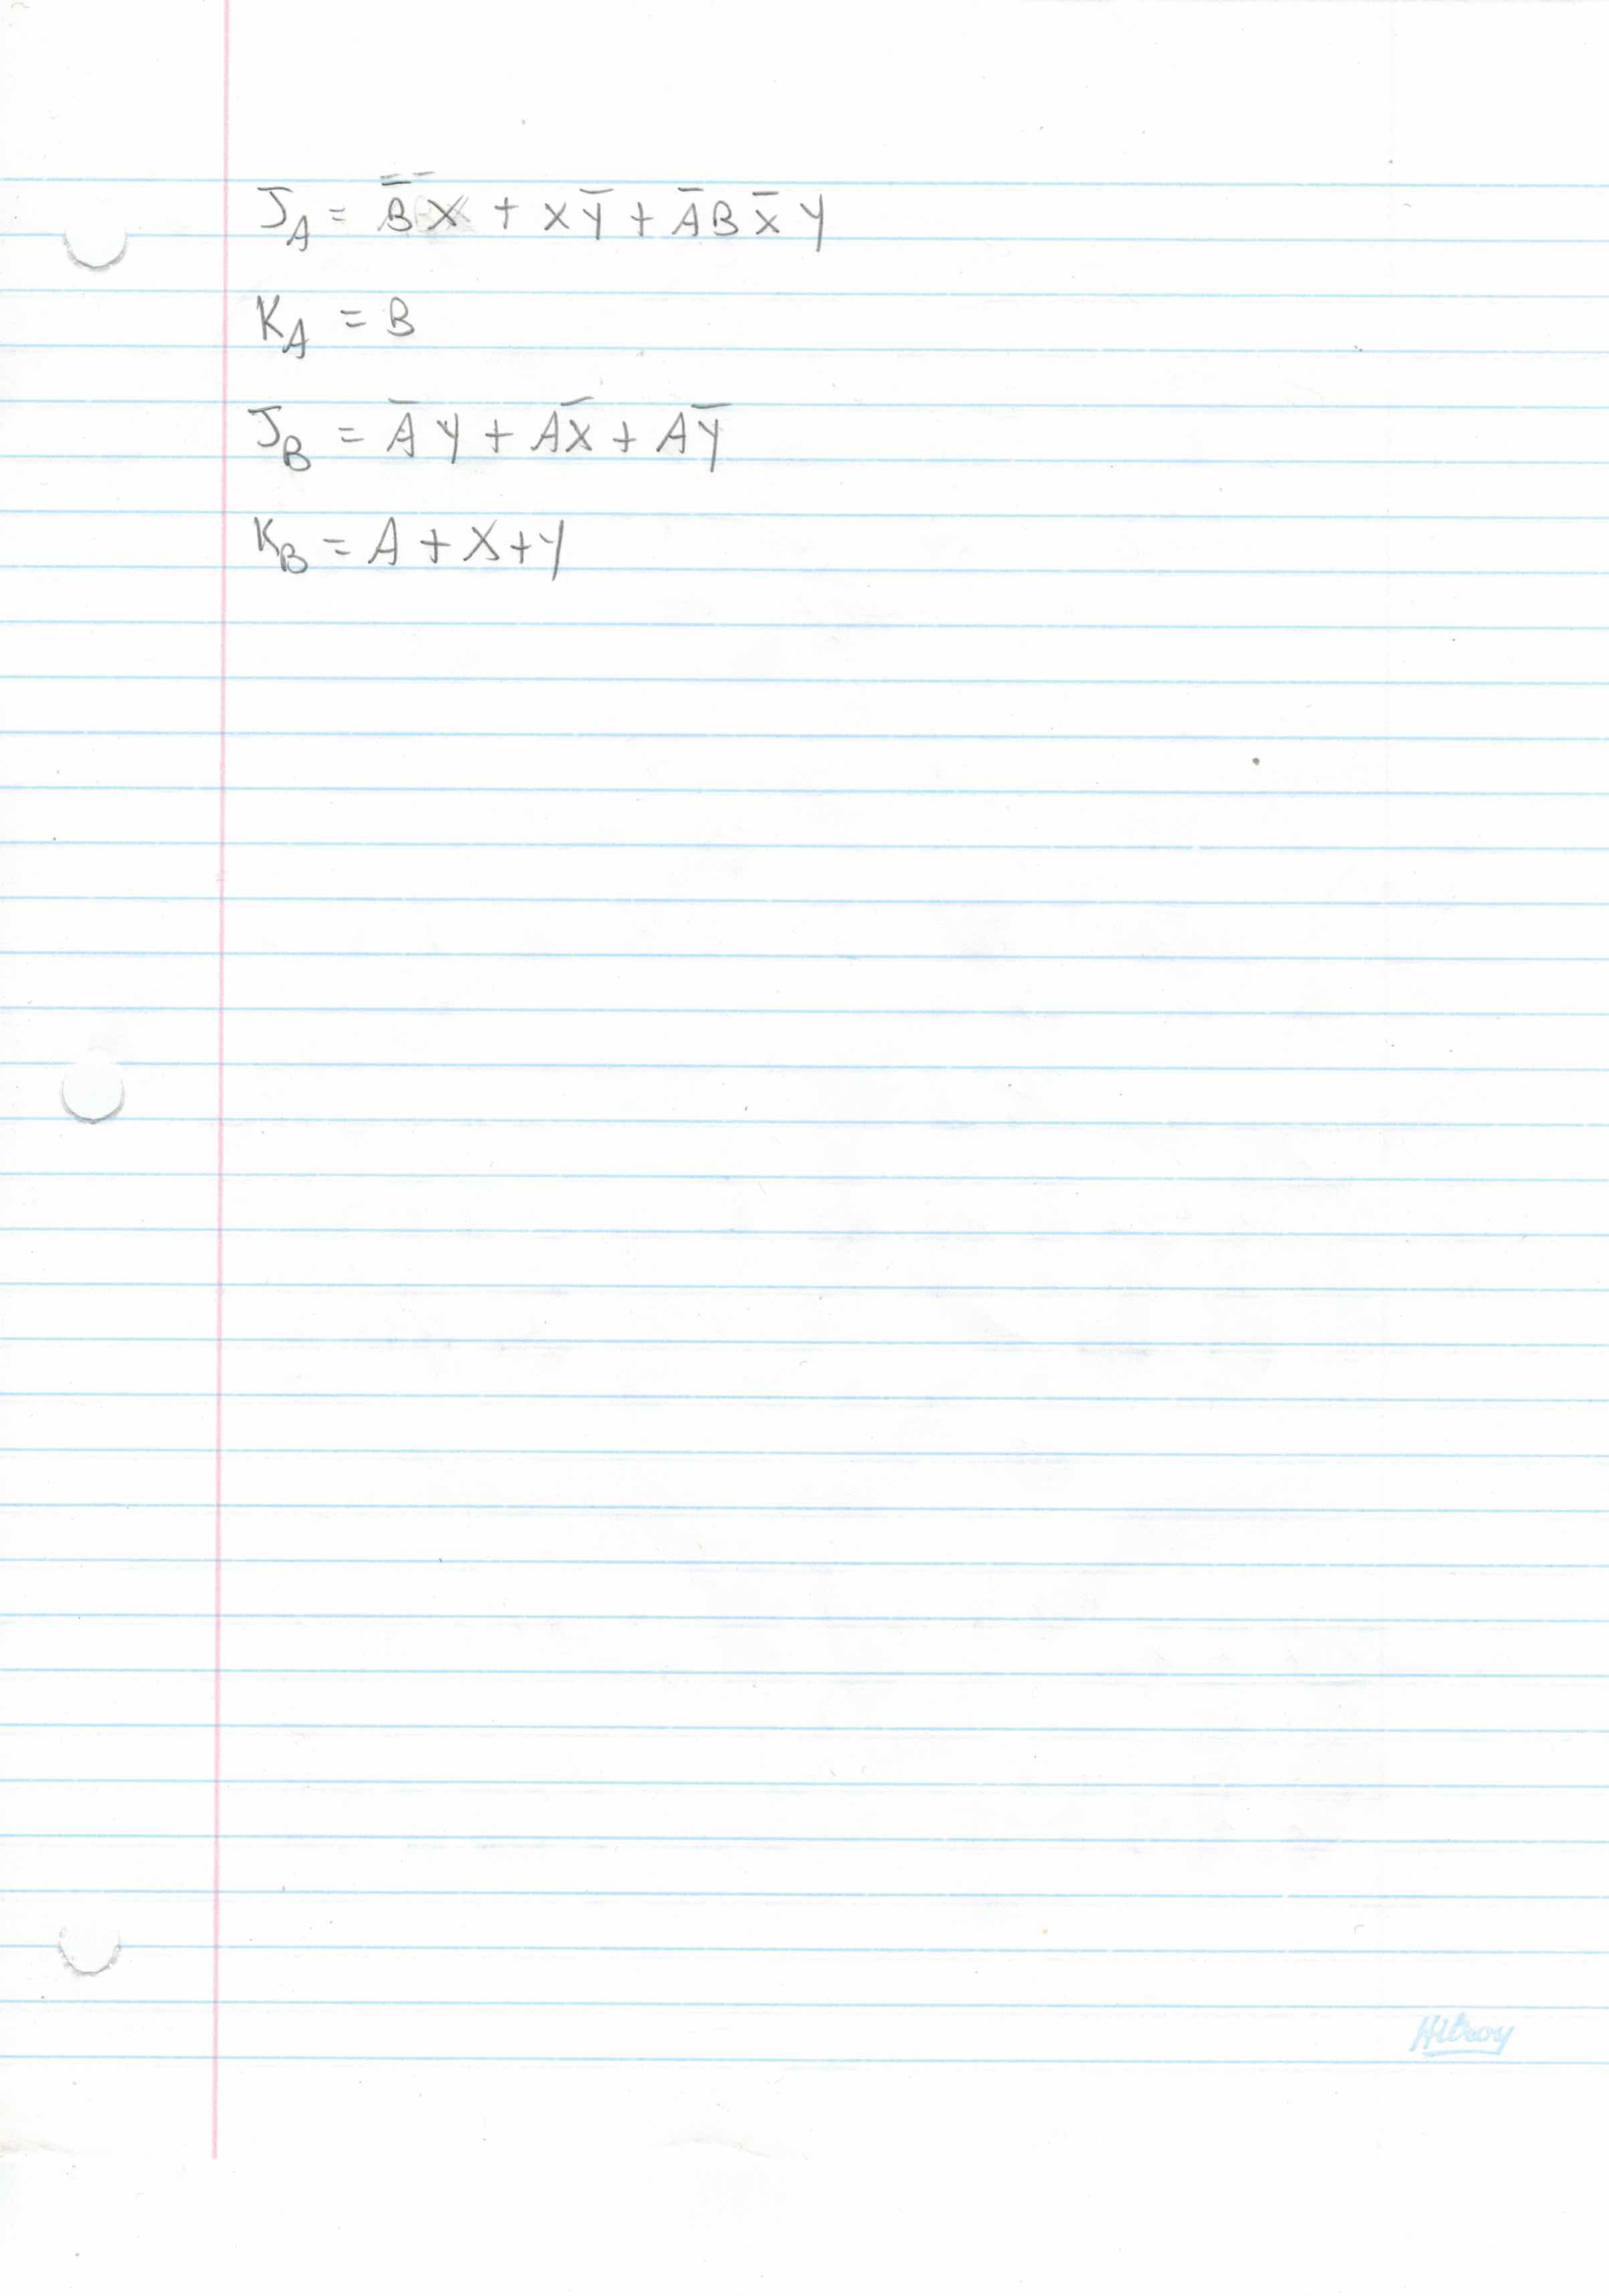 J_A = B̅X + XY̅ + A̅BX̅Y
K_A = B
J_B = A̅Y + AX̅ + AY̅
K_B = A + X + Y
Hilroy